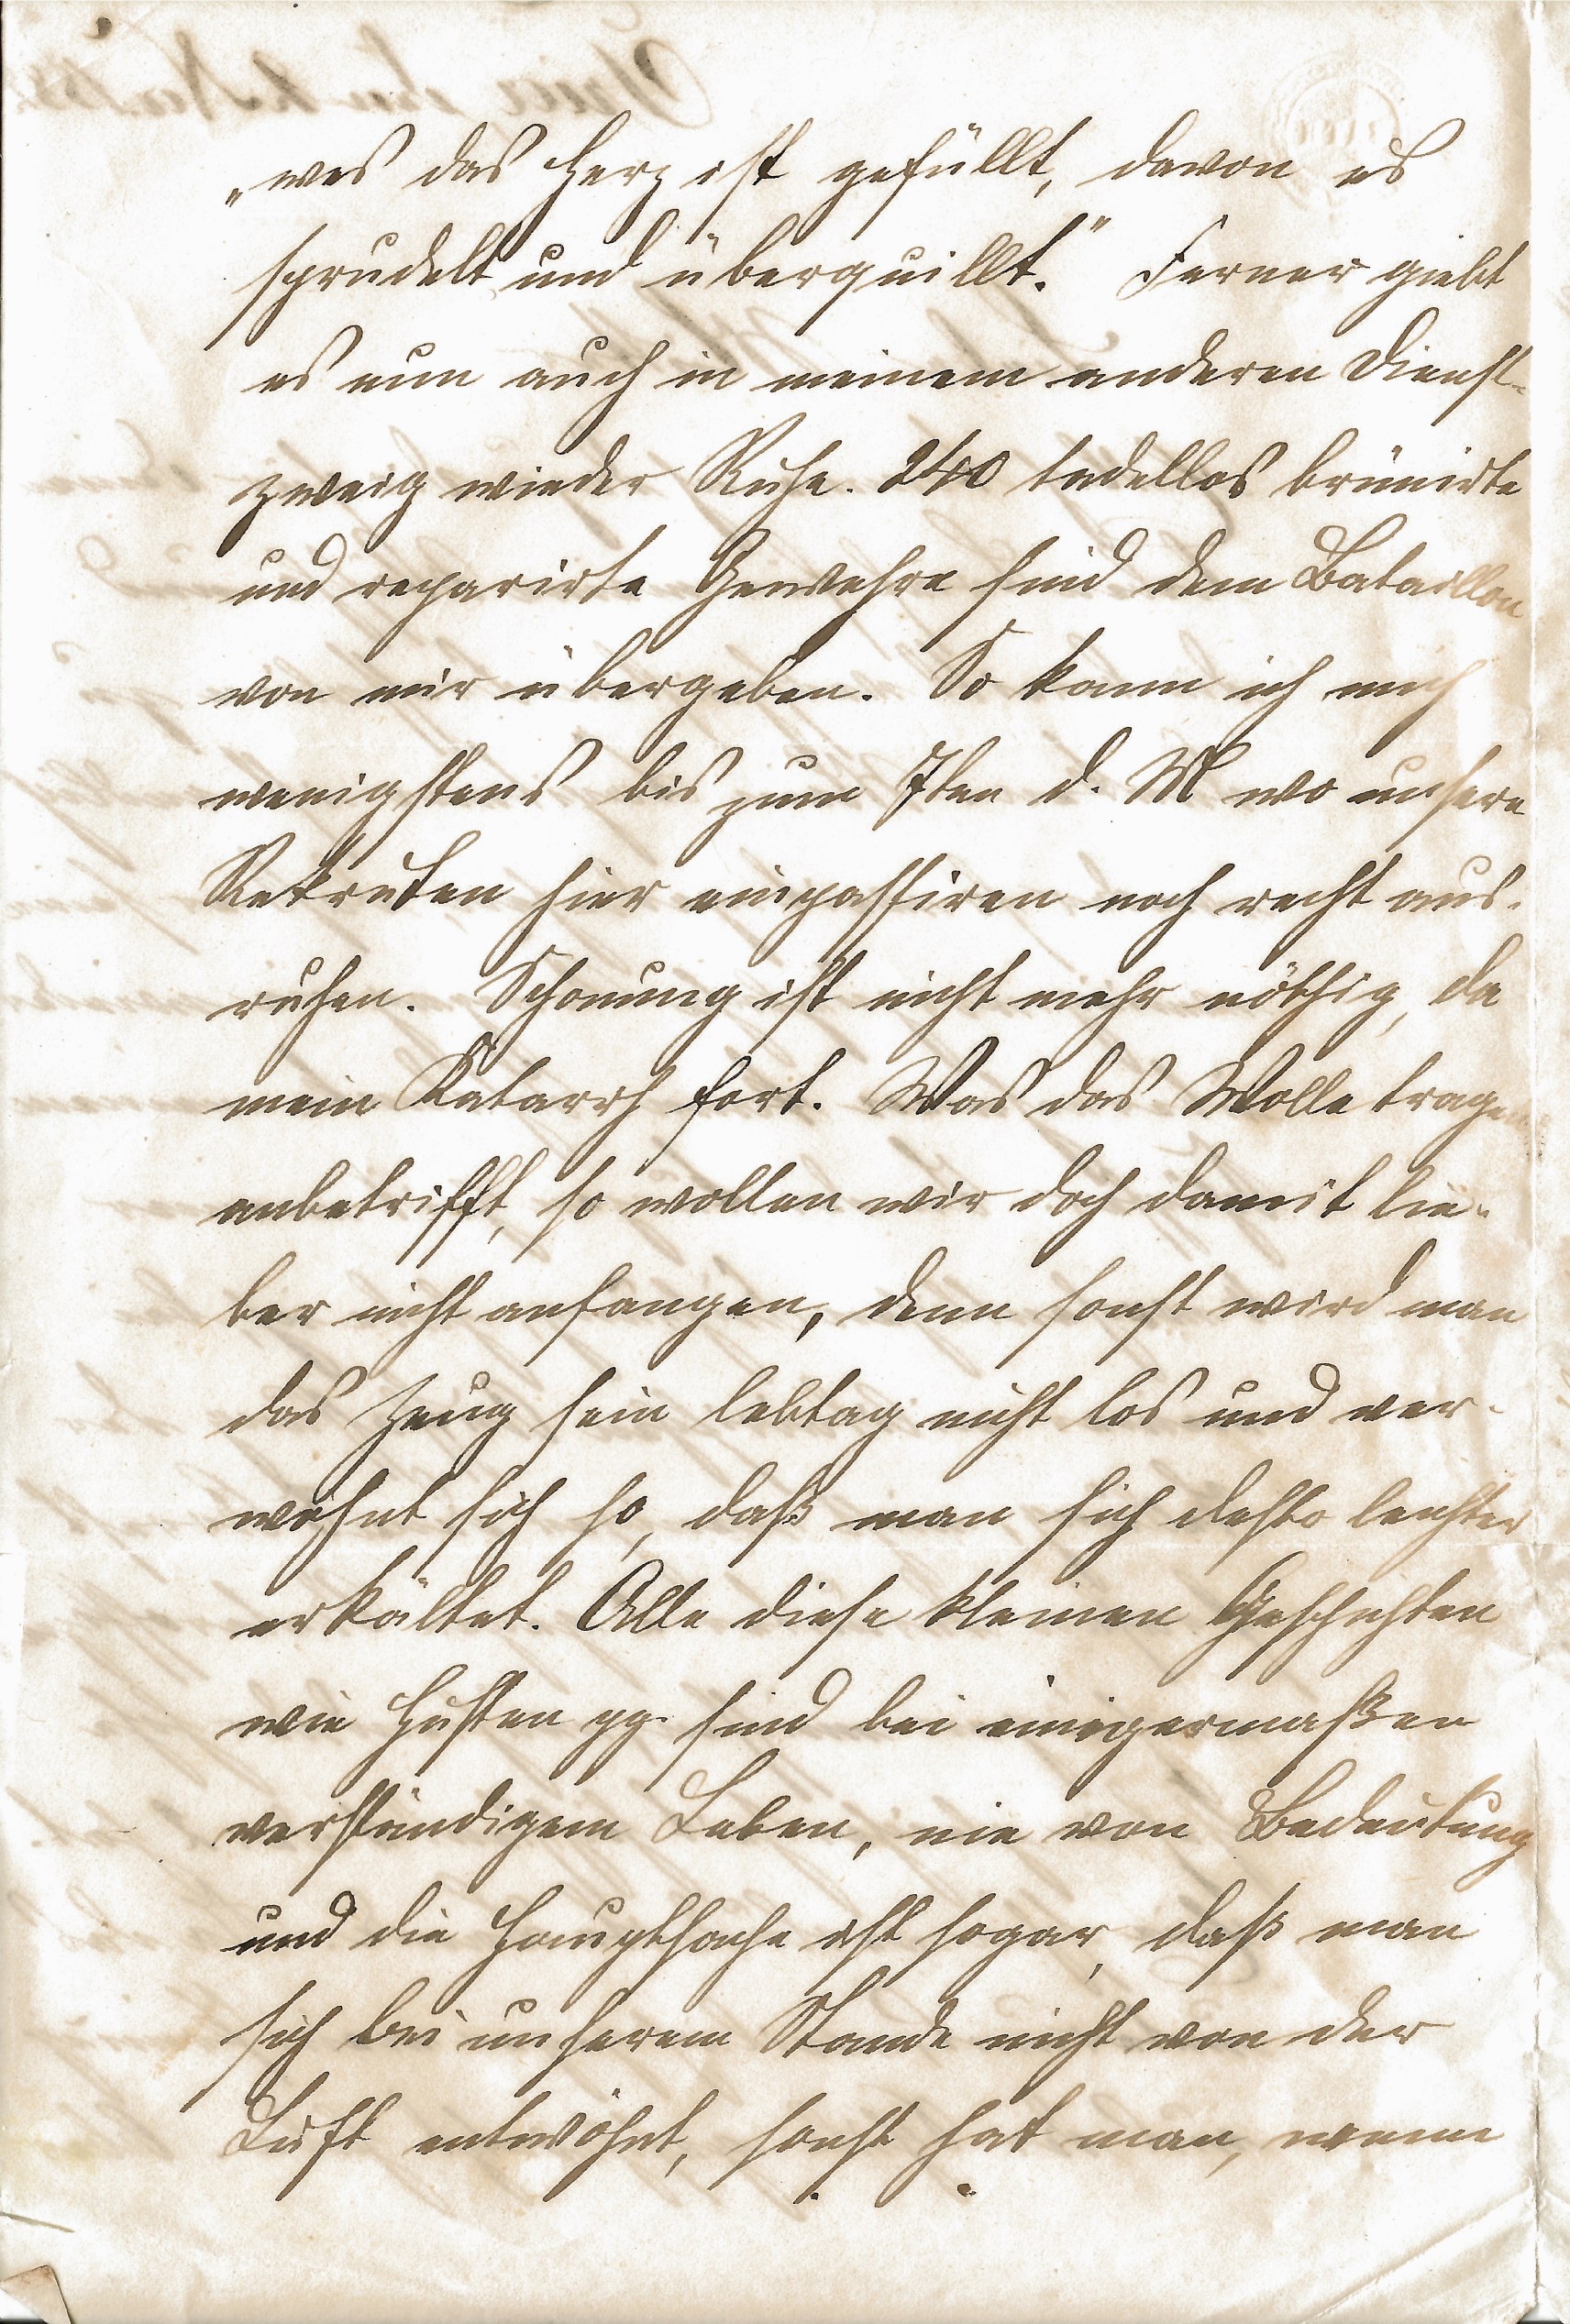 „wes das Herz ist gefüllt, davon es
sprudelt und überquillt." Ferner giebt
es nun auch in meinem anderen Dienst-
zweig wieder Ruhe. 240 tadellos brünirte
und reparirte Gewehre sind dem Bataillon
von mir übergeben. So kann ich mich
wenigstens bis zum 7ten d. M wo unsere
Rekruten hier einpassiren noch recht aus-
ruhen. Schonung ist nicht mehr nöthig, da
mein Katarrh fort. Was das Wolle tragen
anbetrifft, so wollen wir doch damit lie-
ber nicht anfangen, denn sonst wird man
das Zeug sein lebtag nicht los und ver-
wöhnt sich so, daß man sich desto leichter
erkältet. Alle diese kleinen Geschichten
wie Husten pp. sind bei einigermaßen
verständigem Leben, nie von Bedeutung
und die Hauptsache ist sogar, daß man
sich bei unserem Stande nicht von der
Luft entwöhnt, sonst hat man, wenn